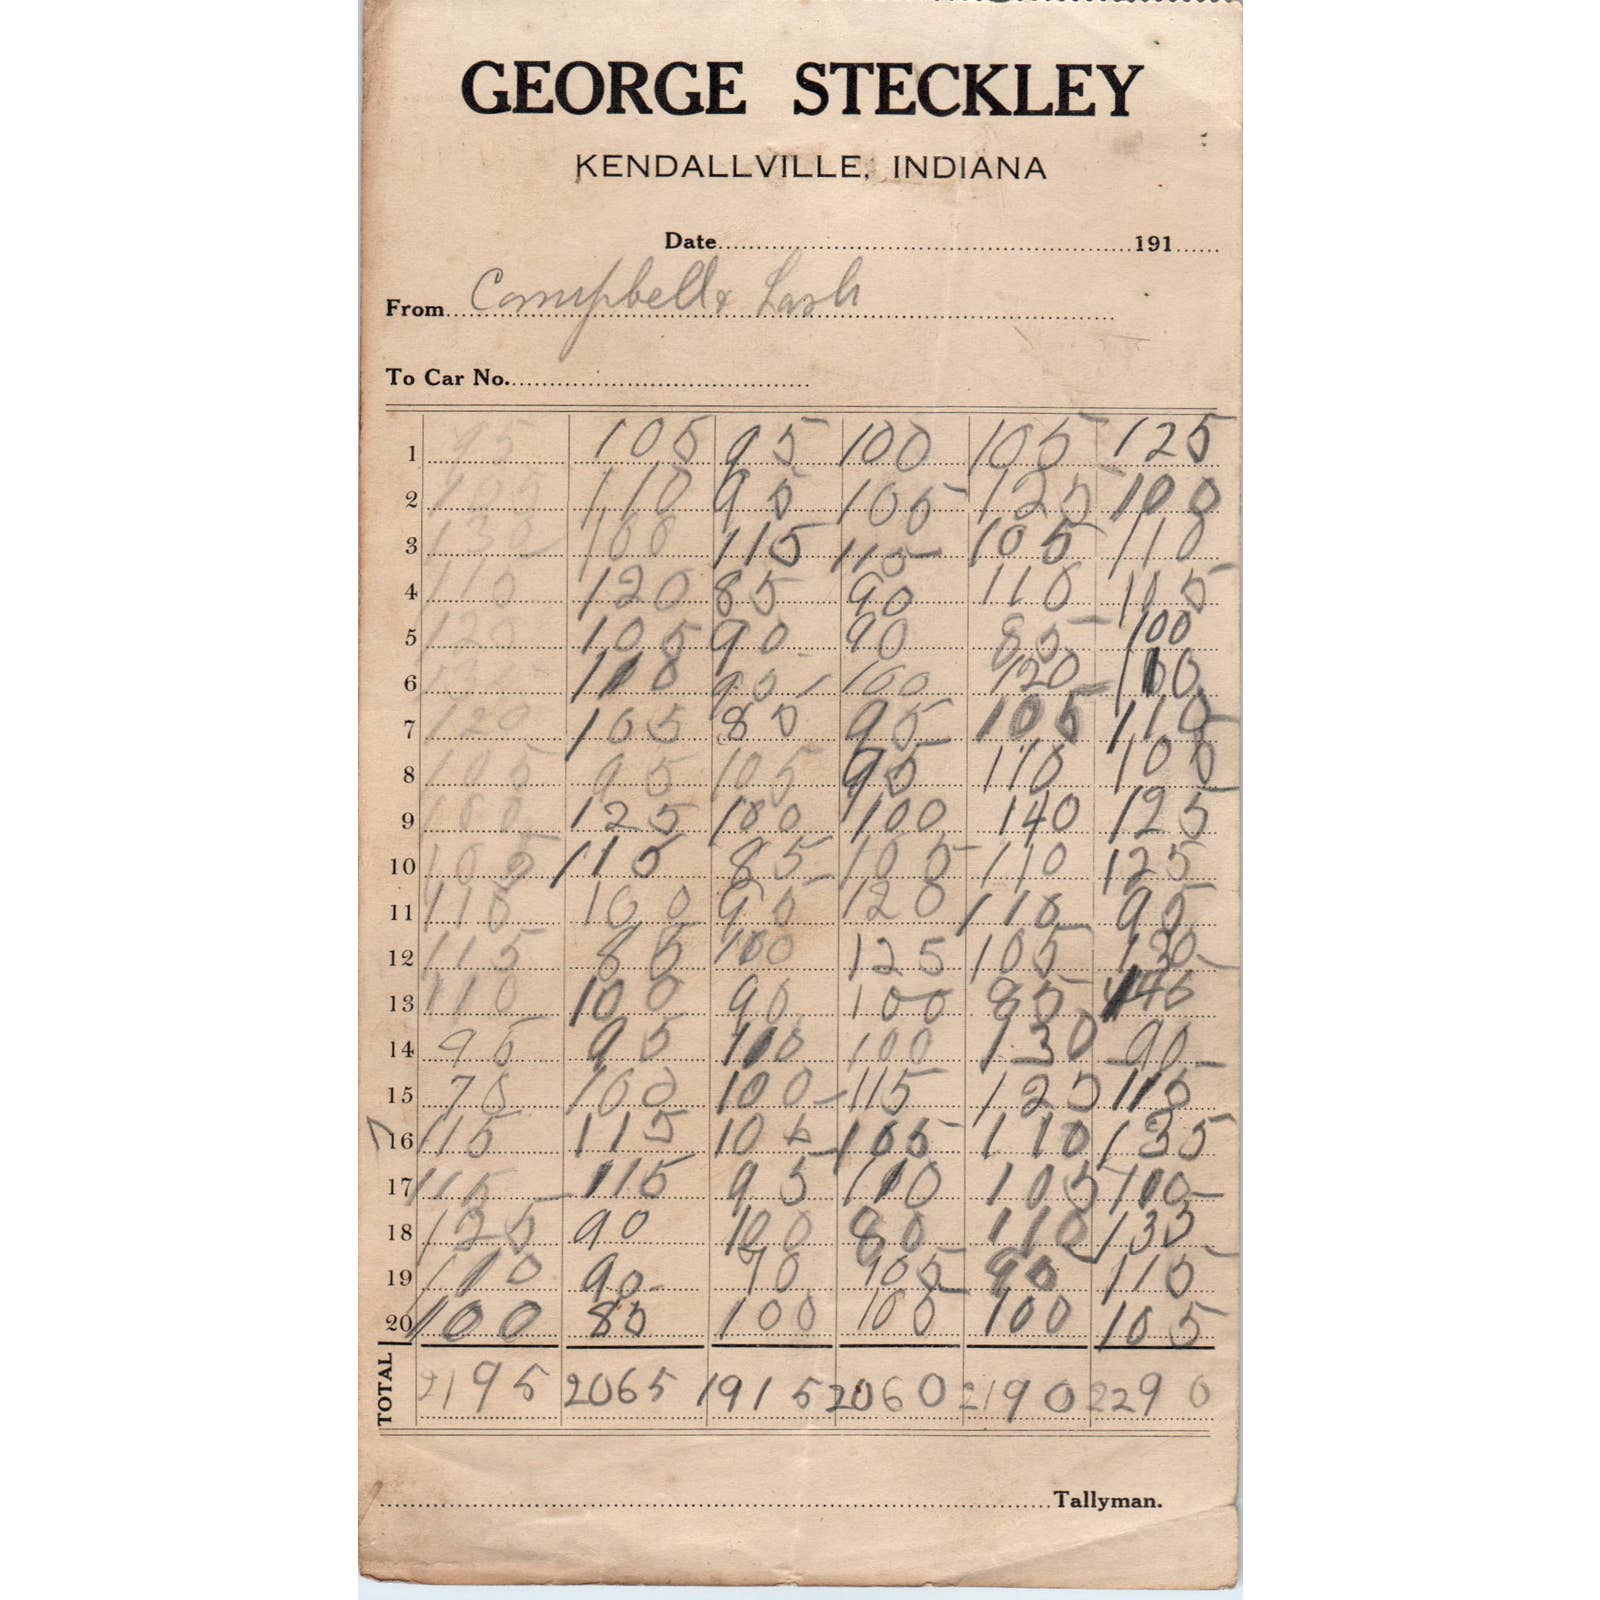 GEORGE STECKLEY
KENDALLVILLE, INDIANA
Date 191
From Campbell & Lash
To Car No.
1 95 105 95 100 105 125
2 105 110 90 105 125 100
3 130 100 115 115 105 110
4 110 120 85 90 110 105
5 120 105 90 90 85 100
6 110 90 100 120 100
7 120 105 80 95 105 110
8 105 95 105 95 110 100
9 100 125 100 100 140 125
10 105 110 85 105 110 125
11 110 100 90 120 110 95
12 115 85 100 125 105 130
13 110 100 90 100 85
14 95 95 110 100 130 90
15 70 100 100 115 125 115
16 115 115 105 105 110 135
17 115 115 95 110 105 110
18 125 90 100 80 110 135
19 110 90 90 105 90 110
20 100 80 100 100 100 105
TOTAL 2195 2065 1915 2060 2190 2290
Tallyman.